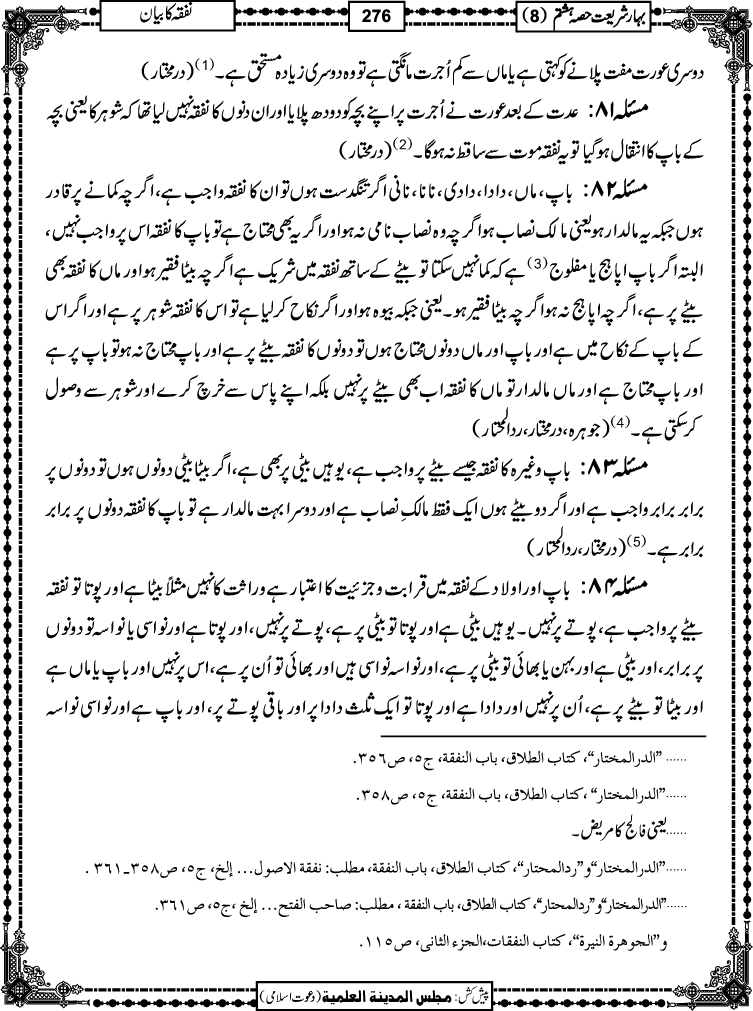 بہارِ شریعت حصہ ہشتم (8)
276
نفقہ کا بیان
دوسری عورت مفت پلانے کو کہتی ہے یا ماں سے کم اُجرت مانگتی ہے تو وہ دوسری زیادہ مستحق ہے۔(1) (درمختار)
مسئلہ ۸۱: عدت کے بعد عورت نے اُجرت پر اپنے بچہ کو دودھ پلایا اور ان دنوں کا نفقہ نہیں لیا تھا کہ شوہر کا یعنی بچہ
کے باپ کا انتقال ہوگیا تو یہ نفقہ موت سے ساقط نہ ہوگا۔(2) (درمختار)
مسئلہ ۸۲: باپ، ماں، دادا، دادی، نانا، نانی اگر تنگدست ہوں تو ان کا نفقہ واجب ہے، اگرچہ کمانے پر قادر
ہوں جبکہ یہ مالدار ہو یعنی مالک نصاب ہو اگرچہ وہ نصاب نامی نہ ہو اور اگر یہ بھی محتاج ہے تو باپ کا نفقہ اس پر واجب نہیں،
البتہ اگر باپ اپاہج یا مفلوج(3) ہے کہ کما نہیں سکتا تو بیٹے کے ساتھ نفقہ میں شریک ہے اگرچہ بیٹا فقیر ہو اور ماں کا نفقہ بھی
بیٹے پر ہے، اگرچہ اپاہج نہ ہو اگرچہ بیٹا فقیر ہو۔ یعنی جبکہ بیوہ ہو اور اگر نکاح کرلیا ہے تو اس کا نفقہ شوہر پر ہے اور اگر اس
کے باپ کے نکاح میں ہے اور باپ اور ماں دونوں محتاج ہوں تو دونوں کا نفقہ بیٹے پر ہے اور باپ محتاج نہ ہو تو باپ پر ہے
اور باپ محتاج ہے اور ماں مالدار تو ماں کا نفقہ اب بھی بیٹے پر نہیں بلکہ اپنے پاس سے خرچ کرے اور شوہر سے وصول
کرسکتی ہے۔(4) (جوہرہ، درمختار، ردالمحتار)
مسئلہ ۸۳: باپ وغیرہ کا نفقہ جیسے بیٹے پر واجب ہے، یوہیں بیٹی پر بھی ہے، اگر بیٹا بیٹی دونوں ہوں تو دونوں پر
برابر برابر واجب ہے اور اگر دو بیٹے ہوں ایک فقط مالکِ نصاب ہے اور دوسرا بہت مالدار ہے تو باپ کا نفقہ دونوں پر برابر
برابر ہے۔(5) (درمختار، ردالمحتار)
مسئلہ ۸۴: باپ اور اولاد کے نفقہ میں قرابت و جزئیت کا اعتبار ہے وراثت کا نہیں مثلاً بیٹا ہے اور پوتا تو نفقہ
بیٹے پر واجب ہے، پوتے پر نہیں۔ یوہیں بیٹی ہے اور پوتا تو بیٹی پر ہے، پوتے پر نہیں، اور پوتا ہے اور نواسی یا نواسہ تو دونوں
پر برابر، اور بیٹی ہے اور بہن یا بھائی تو بیٹی پر ہے، اور نواسہ نواسی ہیں اور بھائی تو اُن پر ہے، اس پر نہیں اور باپ یا ماں ہے
اور بیٹا تو بیٹے پر ہے، اُن پر نہیں اور دادا ہے اور پوتا تو ایک ثلث دادا پر اور باقی پوتے پر، اور باپ ہے اور نواسی نواسہ
...... ”الدرالمختار“، کتاب الطلاق، باب النفقة، ج۵، ص۳۵۶.
...... ”الدرالمختار“ ،کتاب الطلاق، باب النفقة، ج۵، ص۳۵۸.
...... یعنی فالج کا مریض۔
...... ”الدرالمختار“و”ردالمحتار“، کتاب الطلاق، باب النفقة، مطلب: نفقة الاصول... إلخ، ج۵، ص۳۵۸۔۳۶۱ .
...... ”الدرالمختار“و”ردالمحتار“، کتاب الطلاق، باب النفقة ، مطلب: صاحب الفتح... إلخ ،ج۵، ص۳۶۱.
و ”الجوهرة النيرة“، کتاب النفقات،الجزء الثانی، ص۱۱۵.
پیش کش: مجلس المدينة العلمية (دعوتِ اسلامی)